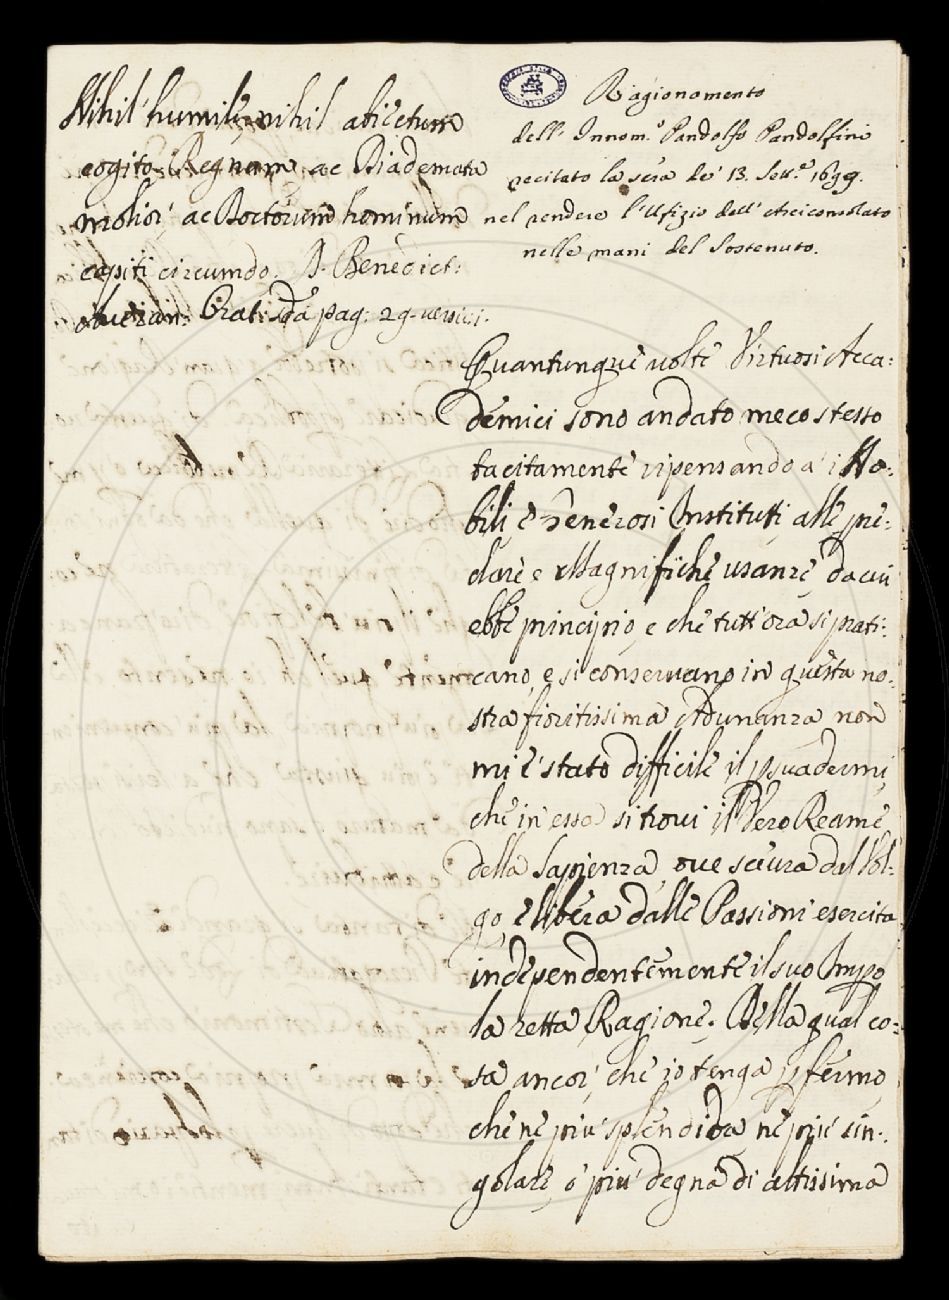 Nihil humile, nihil abiectum
cogito. Regnum, ac Diademata
molior, ac Doctorum hominum
capiti circumdo. B. Benedict:
Averan: Orat: 2da pag: 29. versici.
Ragionamento
dell' Innom.º Pandolfo Pandolfini
recitato la sera de' 13. Sett.e 1699.
nel rendere l'Ufizio dell' Arciconsolato
nelle mani del Sostenuto.
Quantunque volte Virtuosi Acca:
demici sono andato meco stesso
tacitamente ripensando a' i No:
bili, e Generosi Instituti, alle pre:
clare e Magnifiche usanze, da cui
ebbe principio, e che tutt'ora si prati:
cano, e si conservano in questa no:
stra fioritissima Adunanza non
mi è stato difficile il psuadermi,
che in essa si trovi il Vero Reame
della Sapienza, ove scevra dal Vol:
go, e libera dalle Passioni esercita
independentemente il suo Impo
la retta Ragione. Della qual co:
sa ancor, che io tenga p fermo
che ne più splendida, ne più sin:
golare, o più degna di altissima